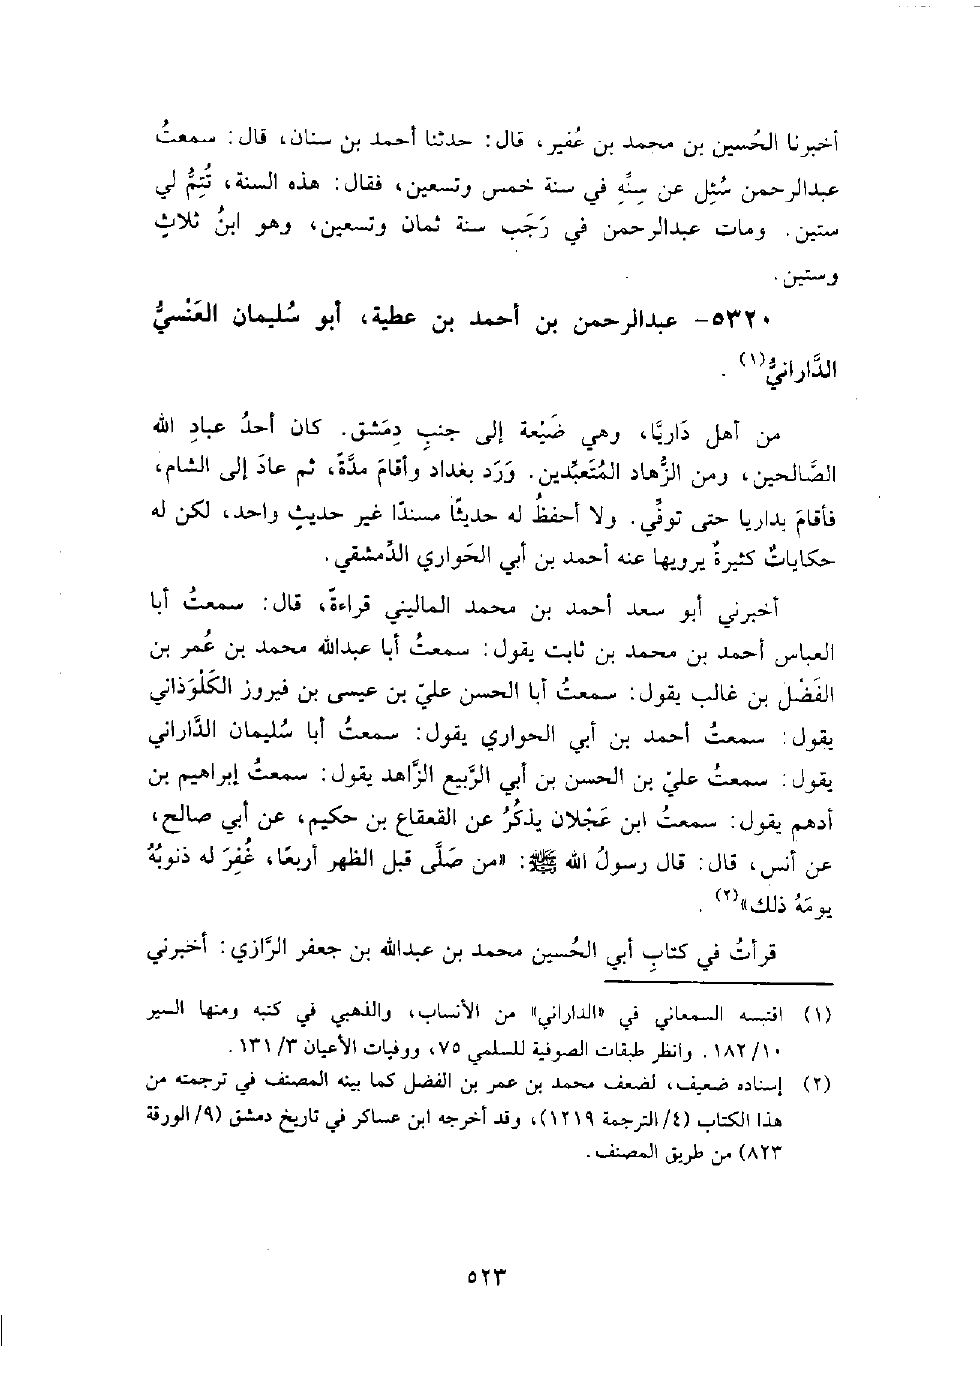 أخبرنا الحُسين بن محمد بن عُفير، قال: حدثنا أحمد بن سنان، قال: سمعتُ
عبدالرحمن سُئِل عن سِنِّهِ في سنة خمس وتسعين، فقال: هذه السنة، تُتِمُّ لي
ستين. ومات عبدالرحمن في رَجَب سنة ثمان وتسعين، وهو ابنُ ثلاثٍ
وستين.
٥٣٢٠- عبدالرحمن بن أحمد بن عطية، أبو سُليمان العَنْسيُّ
الدَّارانيُّ(١).
من أهل دَاريَّا، وهي ضَيْعة إلى جنبِ دِمَشق. كان أحدُ عبادِ الله
الصَّالحين، ومن الزُّهاد المُتَعبِّدين. وَرَد بغداد وأقامَ مدَّةً، ثم عادَ إلى الشام،
فأقامَ بداريا حتى توفِّي. ولا أحفظُ له حديثًا مسندًا غير حديثٍ واحد، لكن له
حكاياتٌ كثيرةٌ يرويها عنه أحمد بن أبي الحَواري الدِّمشقي.
أخبرني أبو سعد أحمد بن محمد الماليني قراءةً، قال: سمعتُ أبا
العباس أحمد بن محمد بن ثابت يقول: سمعتُ أبا عبدالله محمد بن عُمر بن
الفَضْل بن غالب يقول: سمعتُ أبا الحسن عليّ بن عيسى بن فيروز الكَلْوَذاني
يقول: سمعتُ أحمد بن أبي الحواري يقول: سمعتُ أبا سُليمان الدَّاراني
يقول: سمعتُ عليّ بن الحسن بن أبي الرَّبيع الزَّاهد يقول: سمعتُ إبراهيم بن
أدهم يقول: سمعتُ ابن عَجْلان يذكُرُ عن القعقاع بن حكيم، عن أبي صالح،
عن أنس، قال: قال رسولُ الله ﷺ: «من صَلَّى قبل الظهر أربعًا، غُفِرَ له ذنوبُهُ
يومَهُ ذلك»(٢).
قرأتُ في كتابِ أبي الحُسين محمد بن عبدالله بن جعفر الرَّازي: أخبرني
(١) اقتبسه السمعاني في «الداراني» من الأنساب، والذهبي في كتبه ومنها السير
١٨٢/١٠. وانظر طبقات الصوفية للسلمي ٧٥، ووفيات الأعيان ٣/ ١٣١.
(٢) إسناده ضعيف، لضعف محمد بن عمر بن الفضل كما بينه المصنف في ترجمته من
هذا الكتاب (٤/ الترجمة ١٢١٩)، وقد أخرجه ابن عساكر في تاريخ دمشق (٩/ الورقة
٨٢٣) من طريق المصنف.
٥٢٣